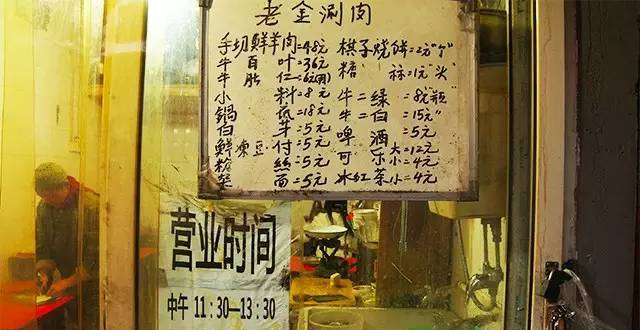 老金涮肉
手切鮮羊肉=48元
牛百叶=36元
牛肚仁
小料=8元
鍋底=18元
白芽=5元
鮮凍豆付=5元
丝=5元
面=5元
棋子烧饼=2元"个"
糖蒜=1元"头"
牛二绿=8元"瓶"
牛二白=15元"
啤酒=5元
可乐大=12元
小=4元
冰红茶小=4元
营业时间
中午 11:30—13:30